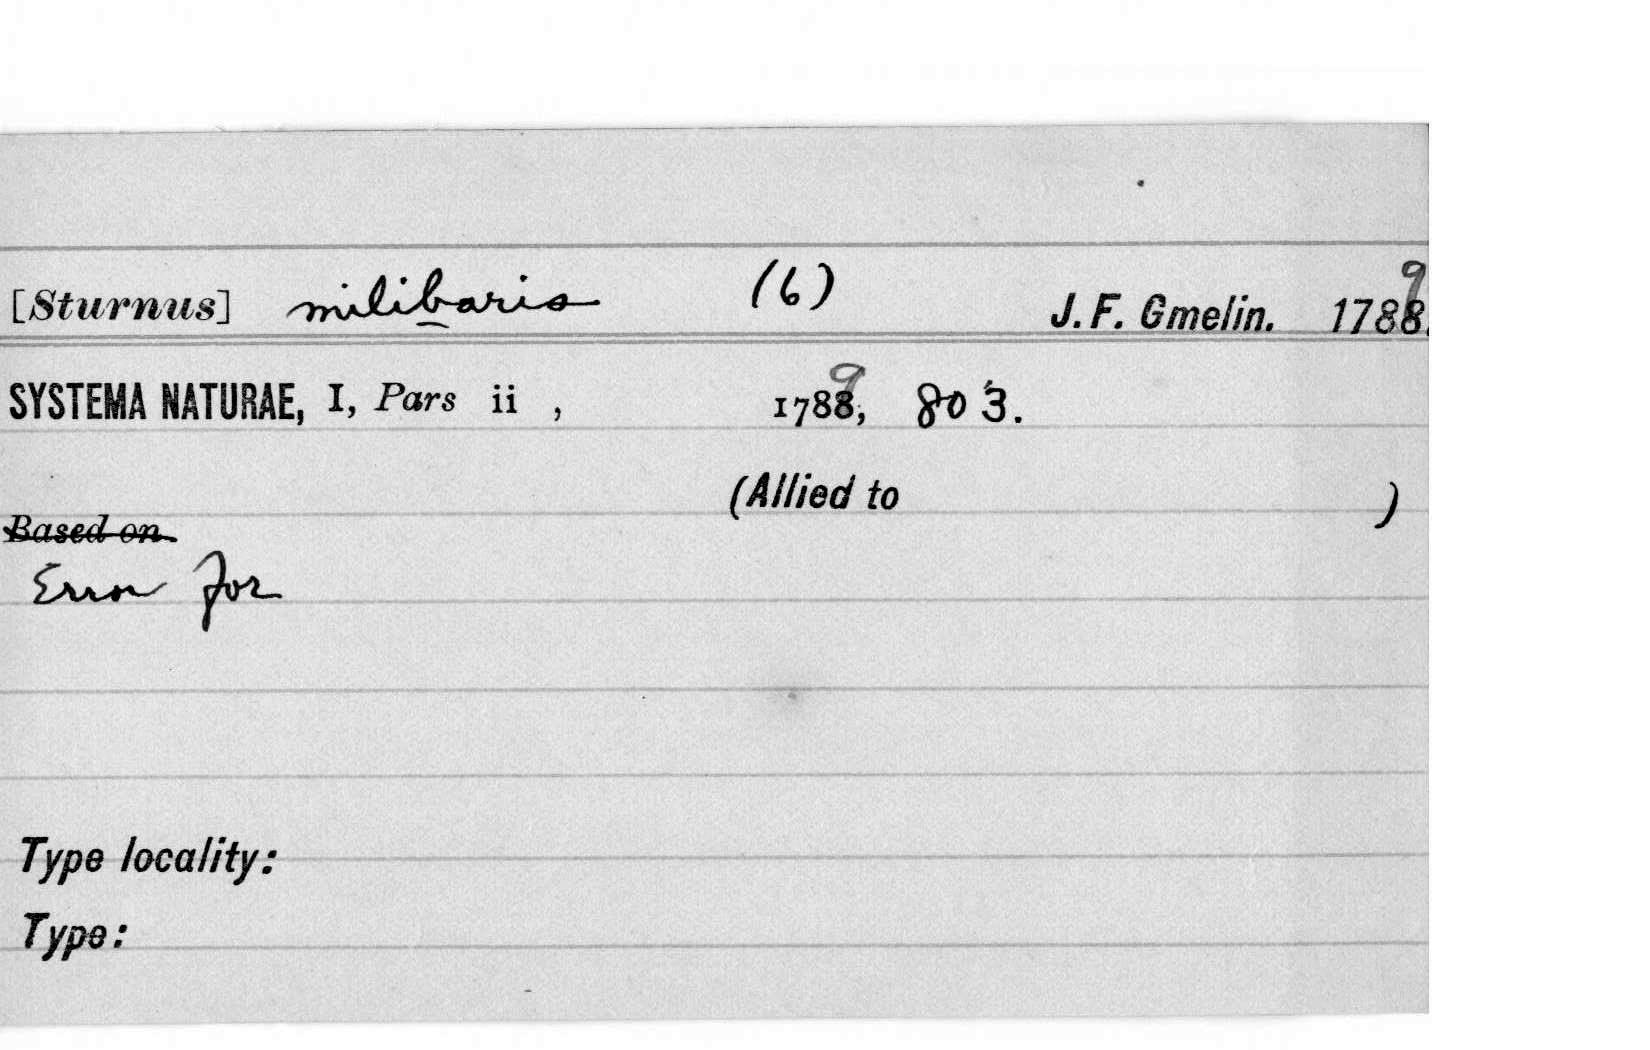 [Sturnus] milibaris (6) J. F. Gmelin. 17889
SYSTEMA NATURAE, I, Pars ii , 17889, 803.
(Allied to )
Based on
Error for
Type locality:
Type: